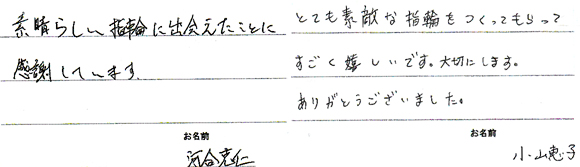 素晴らしい指輪に出会えたことに
感謝しています
お名前
河合克仁
とても素敵な指輪をつくってもらって
すごく嬉しいです。大切にします。
ありがとうございました。
お名前
小山恵子